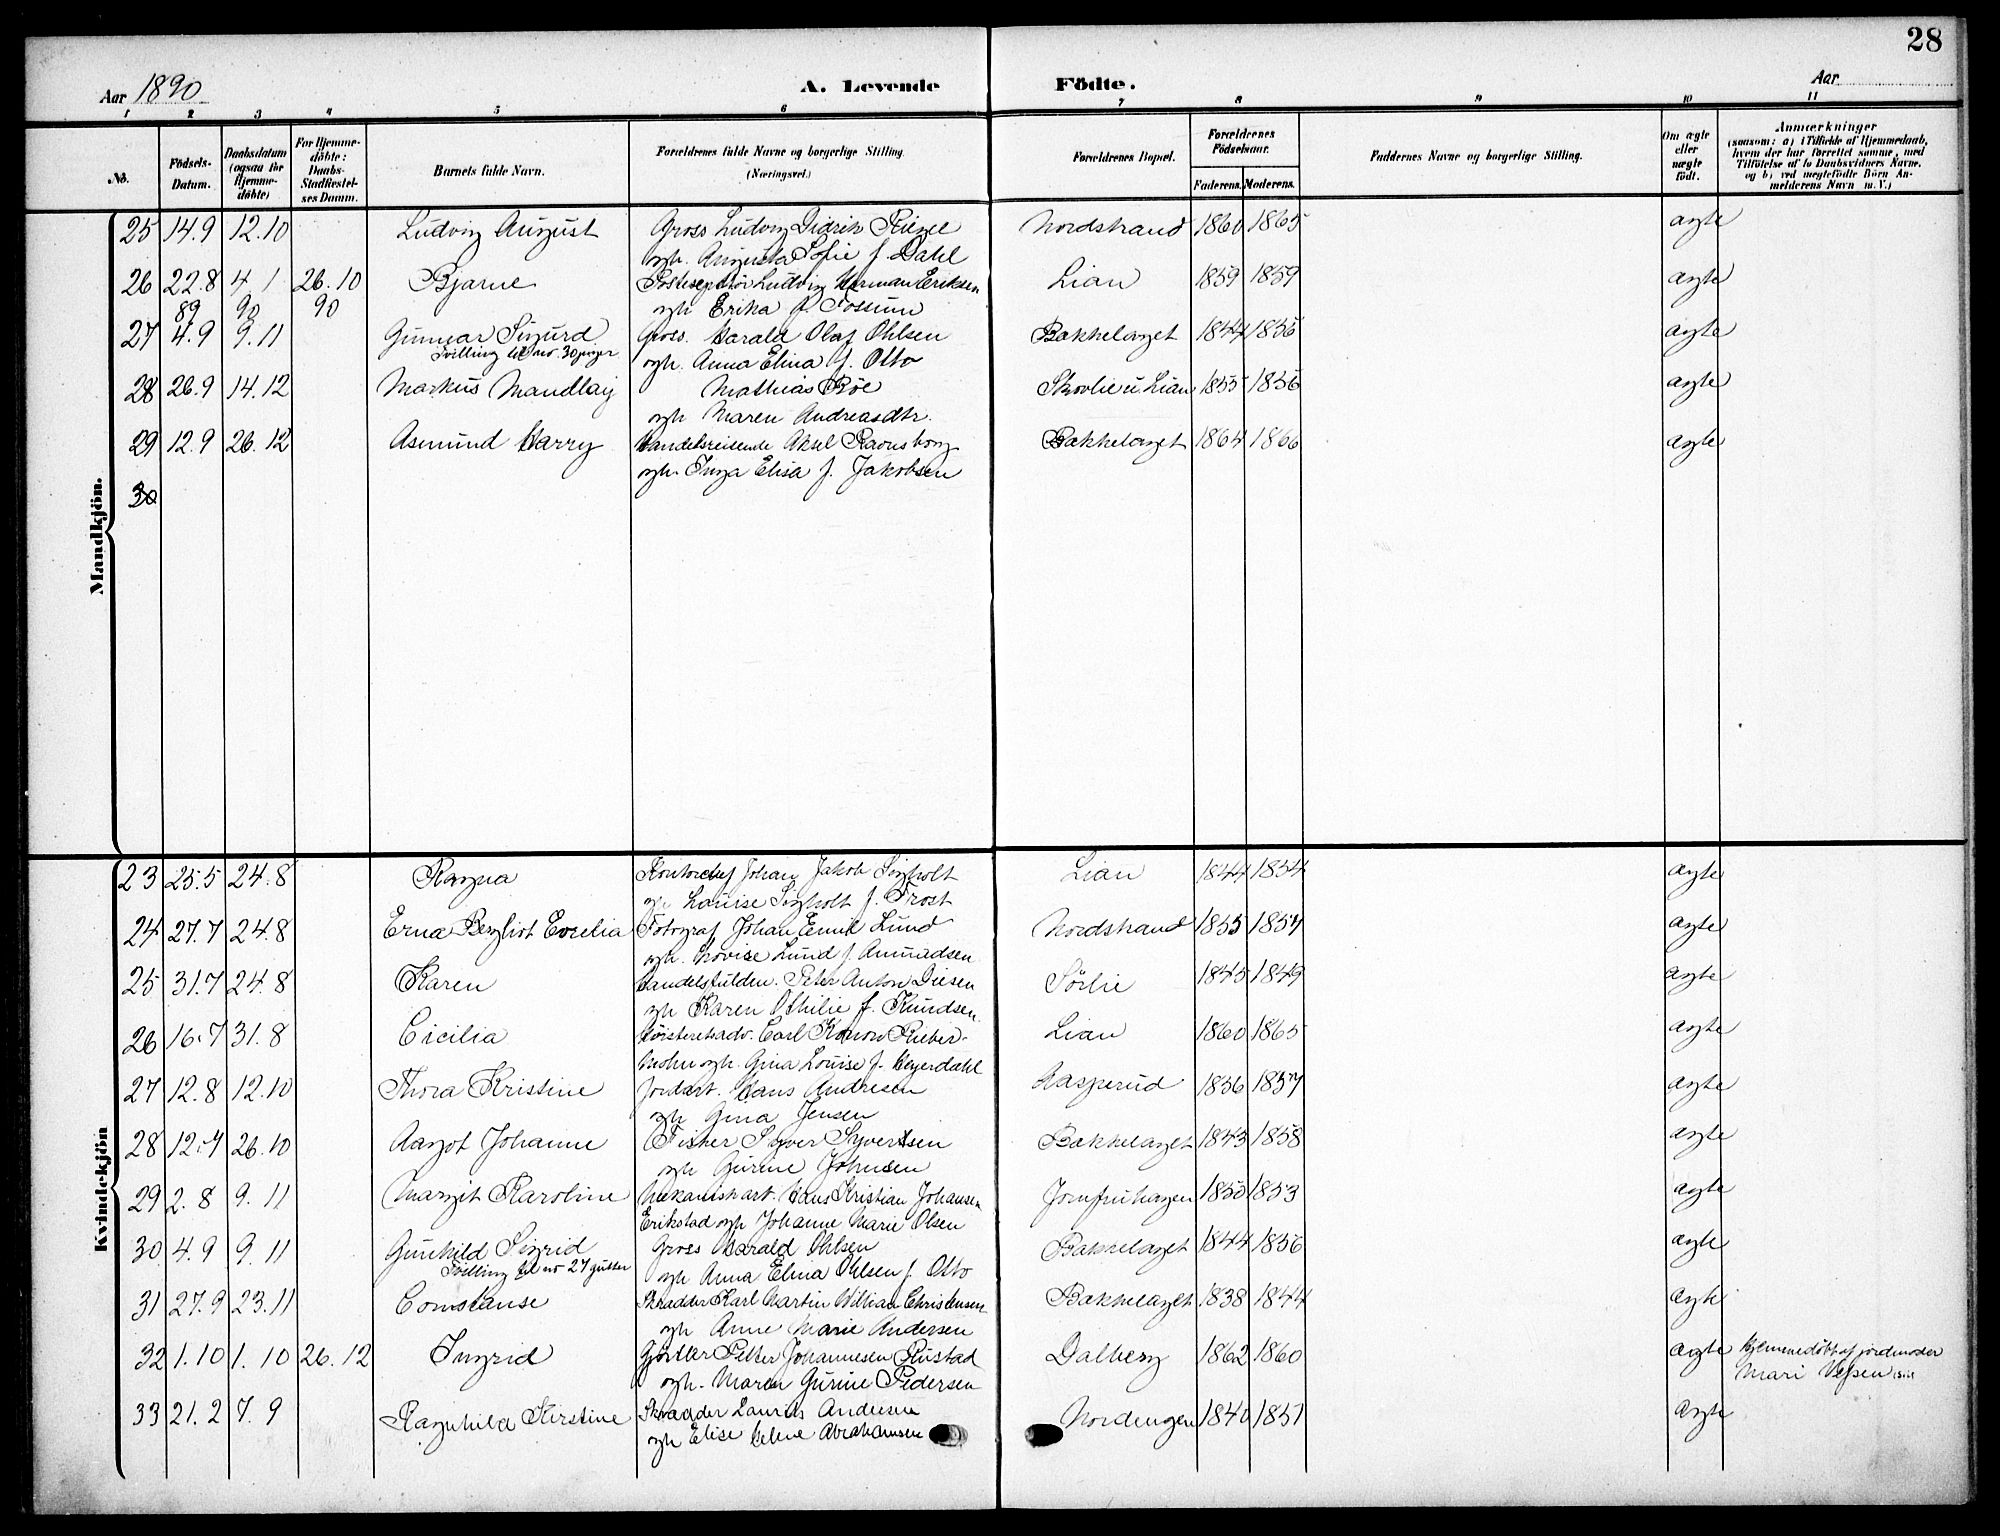 28
Aar 1890
A. Levende Födte.
Aar
1 2 3 4 5 6 7 8 9 10 11
No.
Födsels-Datum.
Daabsdatum (ogsaa for Hjemme-döbte)
For Hjemme-döbte: Daabs-Stadfæstel-ses Datum.
Barnets fulde Navn.
Forældrenes fulde Navne og borgerlige Stilling. (Næringsvei.)
Forældrenes Bopæl.
Forældrenes Födselsaar.
Faderens. Moderens.
Faddernes Navne og borgerlige Stilling.
Om ægte eller uægte födt.
Anmærkninger
(saasom: a) i Tilfælde af Hjemmedaab,
hvem der har forrettet samme, med
Tilföielse af to Daabsvidners Navne.
og b) ved uegtefödte Börn An-
melderens Navn m. V.)
Mandkjön.
25 14.9 12.10 Ludvig August Gross Ludvig Didrik Nordstrand 1860 1865 ægte
ogh. Augusta Sofie f Dahl
26 22.8 4.1 26.10 Bjarne Ludvig Herman Eriksen Lian 1859 1859 ægte
89 90 90 ogh Erika f. Fossum
27 4.9 9.11 Gunnar Sigurd Gross. Harald Olaf Ohlsen Bækkelaget 1844 1856 ægte
Tvilling til no. 30 piger ogh. Anna Elina f. Otto
28 26.9 14.12 Markus Mandlaij Mathias Röe Skovlie u Lian 1855 1856 ægte
ogh Maren Andreasdtr.
29 12.9 26.12 Asmund Harry Handelsreisende Aksel Ravnsborg Bækkelaget 1864 1866 ægte
ogh. Inga Elisa f. Jakobsen
30
Kvindekjön
23 25.5 24.8 Ragna Kontorchef Johan Jakob Sigholt Lian 1844 1854 ægte
ogh Louise Sigholt f. Frost
24 27.7 24.8 Erna Bergliot Fotograf Johan Emil Lund Nordstrand 1855 1857 ægte
ogh. Lovise Lund f. Amundsen
25 31.7 24.8 Karen Peter Anton Diesen Sörlie 1845 1849 ægte
ogh Karen Othilie f. Knudsen
26 16.7 31.8 Cicilia Höisteretsadv. Carl Konow Rieber- Lian 1860 1865 ægte
Mohn ogh. Gina Louise f. Heyerdahl
27 12.8 12.10 Thora Kristine Jordarb. Hans Andresen Kasperud 1856 1857 ægte
ogh Gina Jensen
28 12.7 26.10 Aagot Johanne Fisker Syver Syvertsen Bækkelaget 1843 1858 ægte
ogh Gurine Johnsen
29 2.8 9.11 Margit Karoline Mekanisk arb. Hans Kristian Johansen Jomfruhagen 1850 1853 ægte
Erikstad ogh Johanne Marie Olsen
30 4.9 9.11 Gunhild Sigrid Gross Harald Ohlsen Bækkelaget 1844 1856 ægte
Tvilling til no 27 gutter ogh Anna Elina Ohlsen f. Otto
31 27.9 23.11 Constanse Skrædder Karl Martin William Christensen Bækkelaget 1838 1844 ægte
ogh Anne Marie Andersen
32 1.10 1.10 26.12 Ingrid Gjörtler Petter Johannesen Rustad Dalberg 1862 1860 ægte Hjemmedöbt af jordmoder
ogh. Maren Gurine Pedersen Mari
33 21.2 7.9 Ragnhild Kirstine Skrædder Laurits Andersen Nordengen 1840 1851 ægte
ogh Elise Helene Abrahamsen